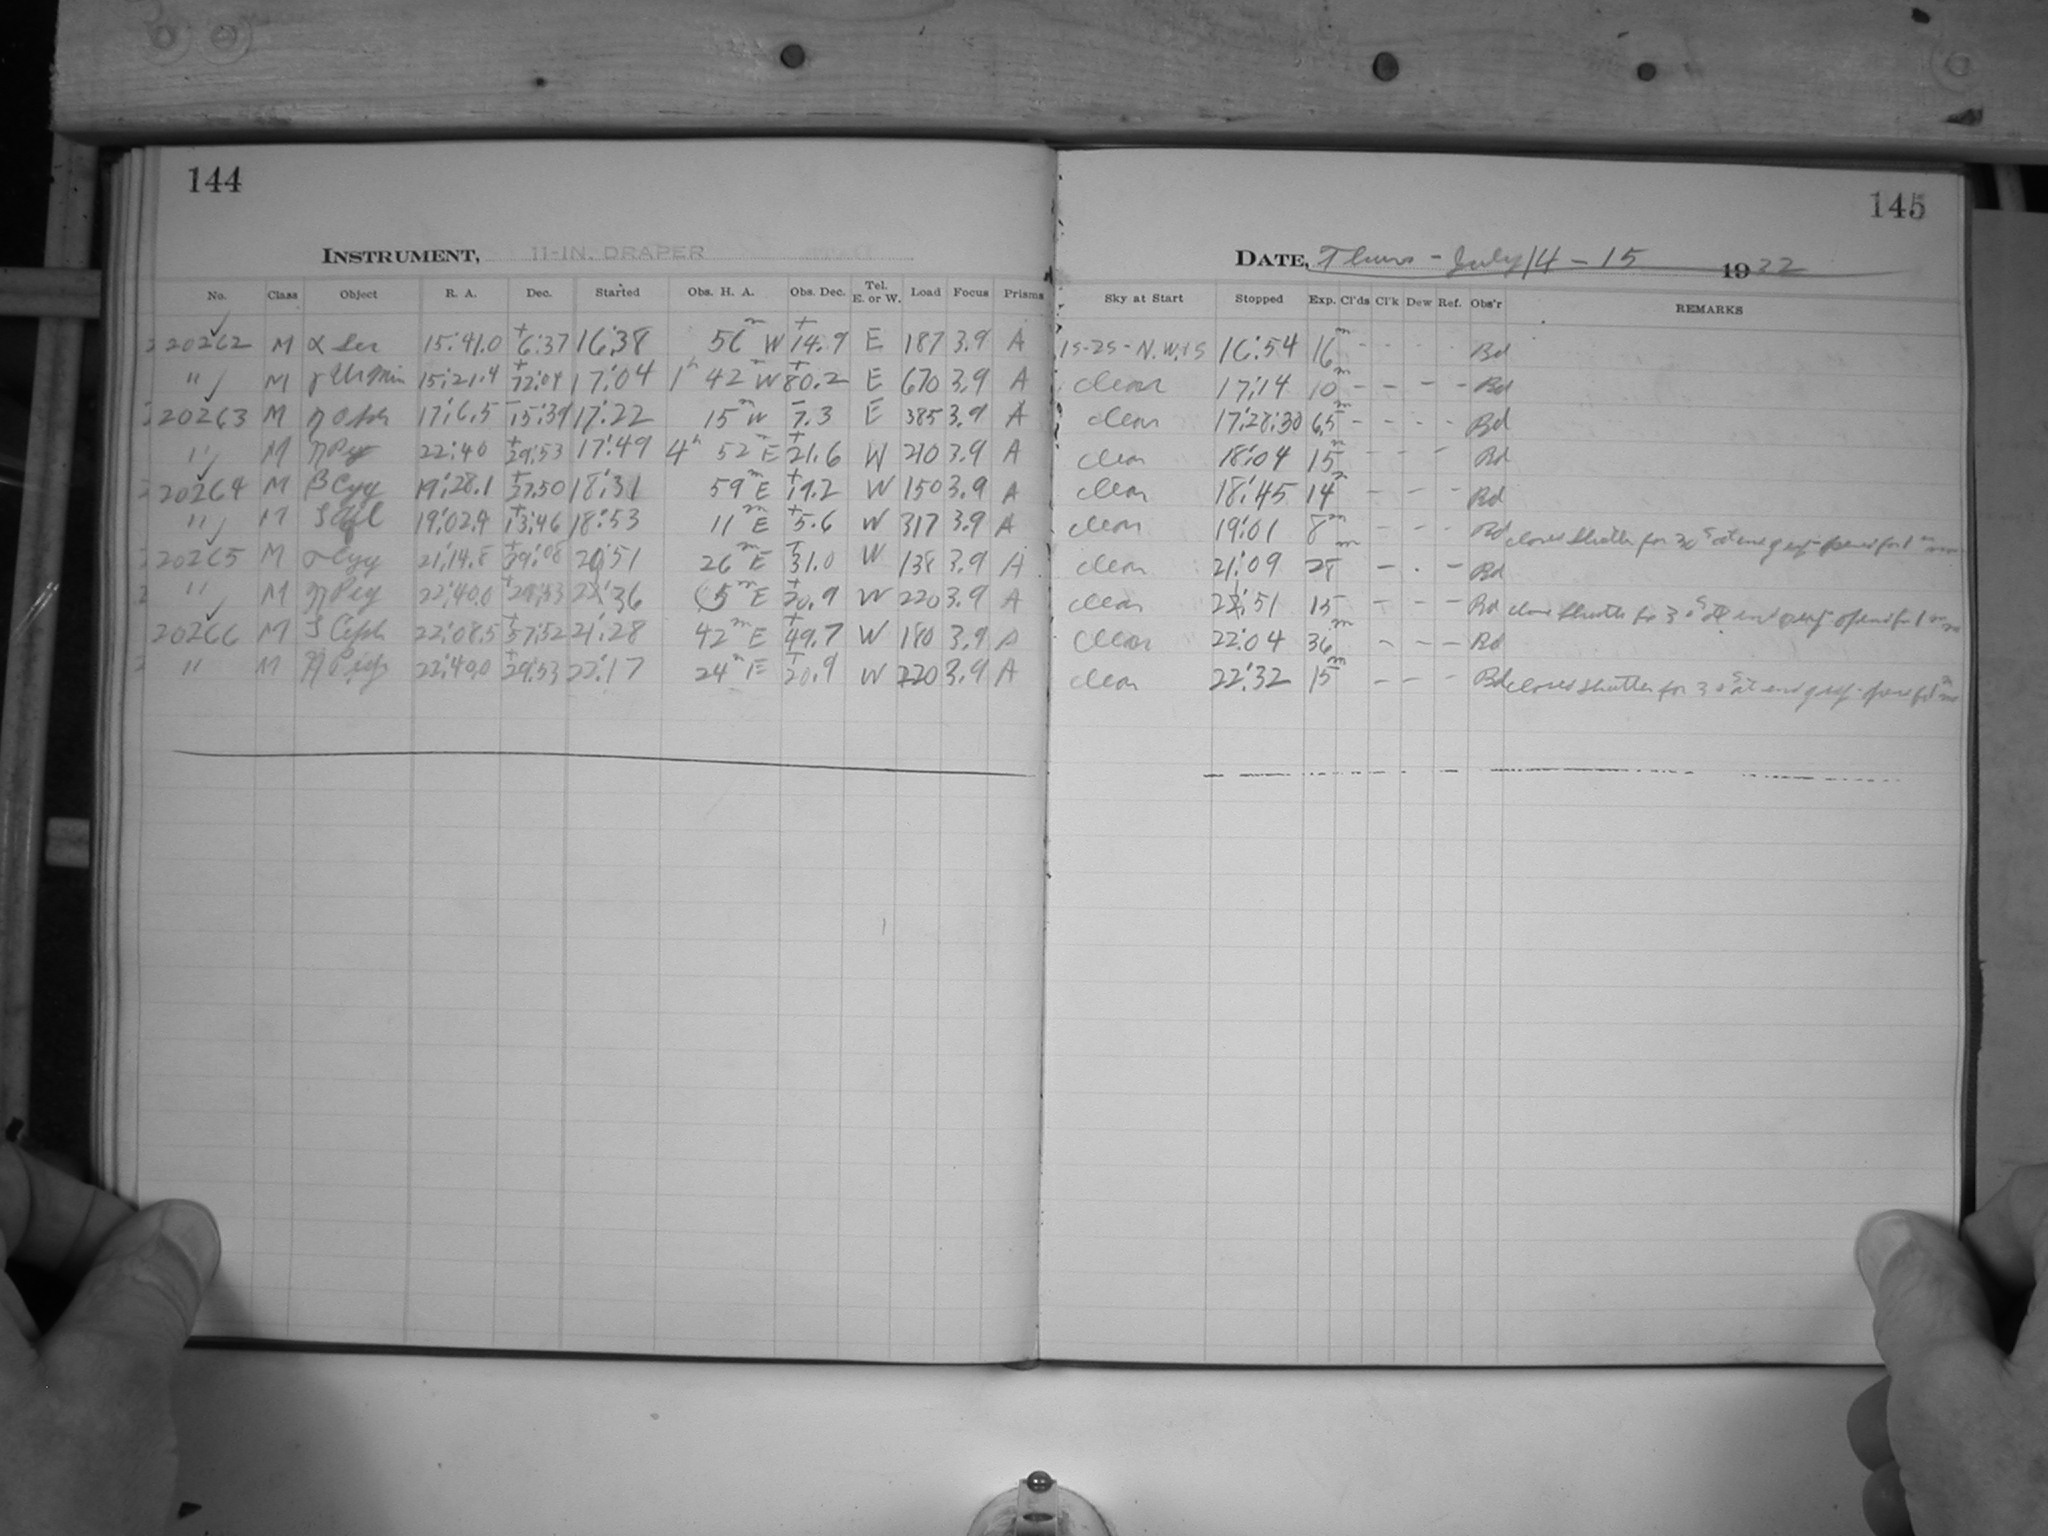 144
INSTRUMENT, 11-IN. DRAPER
No. Class Object R. A. Dec. Started Obs. H. A. Obs. Dec. Tel. E. or W. Load Focus Prisms
20262 M α Ser 15:41.0 +6:37 16:38 56m W +14.9 E 187 3.9 A
" M γ UrMin 15:21.4 +72:04 17:04 1h 42m W +80.2 E 670 3.9 A
20263 M η Oph 17:6.5 -15:39 17:22 15m W -7.3 E 385 3.9 A
" M η Peg 22:40 +29:53 17:49 4h 52m E +21.6 W 210 3.9 A
20264 M β Cyg 19:28.1 +27.50 18:31 59m E +19.2 W 150 3.9 A
" M ζ Aql 19:02.4 +13:46 18:53 11m E +5.6 W 317 3.9 A
20265 M σ Cyg 21:14.8 +39:08 20:51 26m E +31.0 W 138 3.9 A
" M η Peg 22:40.0 +29:53 :36 5m E +20.9 W 220 3.9 A
20266 M ζ Ceph 22:08.5 +57:52 21:28 42m E +49.7 W 180 3.9 A
" M η Peg 22:40.0 +29:53 22:17 24m E +20.9 W 220 3.9 A
145
DATE, Thurs - July 14 - 15 1932
Sky at Start Stopped Exp. Cl'ds Cl'k Dew Ref. Obs'r REMARKS
1S-2S - N.W.+S 16:54 16m - - - - Bd
clear 17:14 10m - - - - Bd
clear 17:28:30 6.5m - - - - Bd
clear 18:04 15m - - - Bd
clear 18:45 14m - - - Bd
clear 19:01 8m - - - Bd closed shutter for 30s at end of exp - opened for 1m
clear 21:09 28m - - - Bd
clear :51 15 - - - Bd close shutter for 30s at end of exp - opened for 1m
clear 22:04 36m - - - Bd
clear 22:32 15m - - - Bd closed shutter for 30s at end of exp -